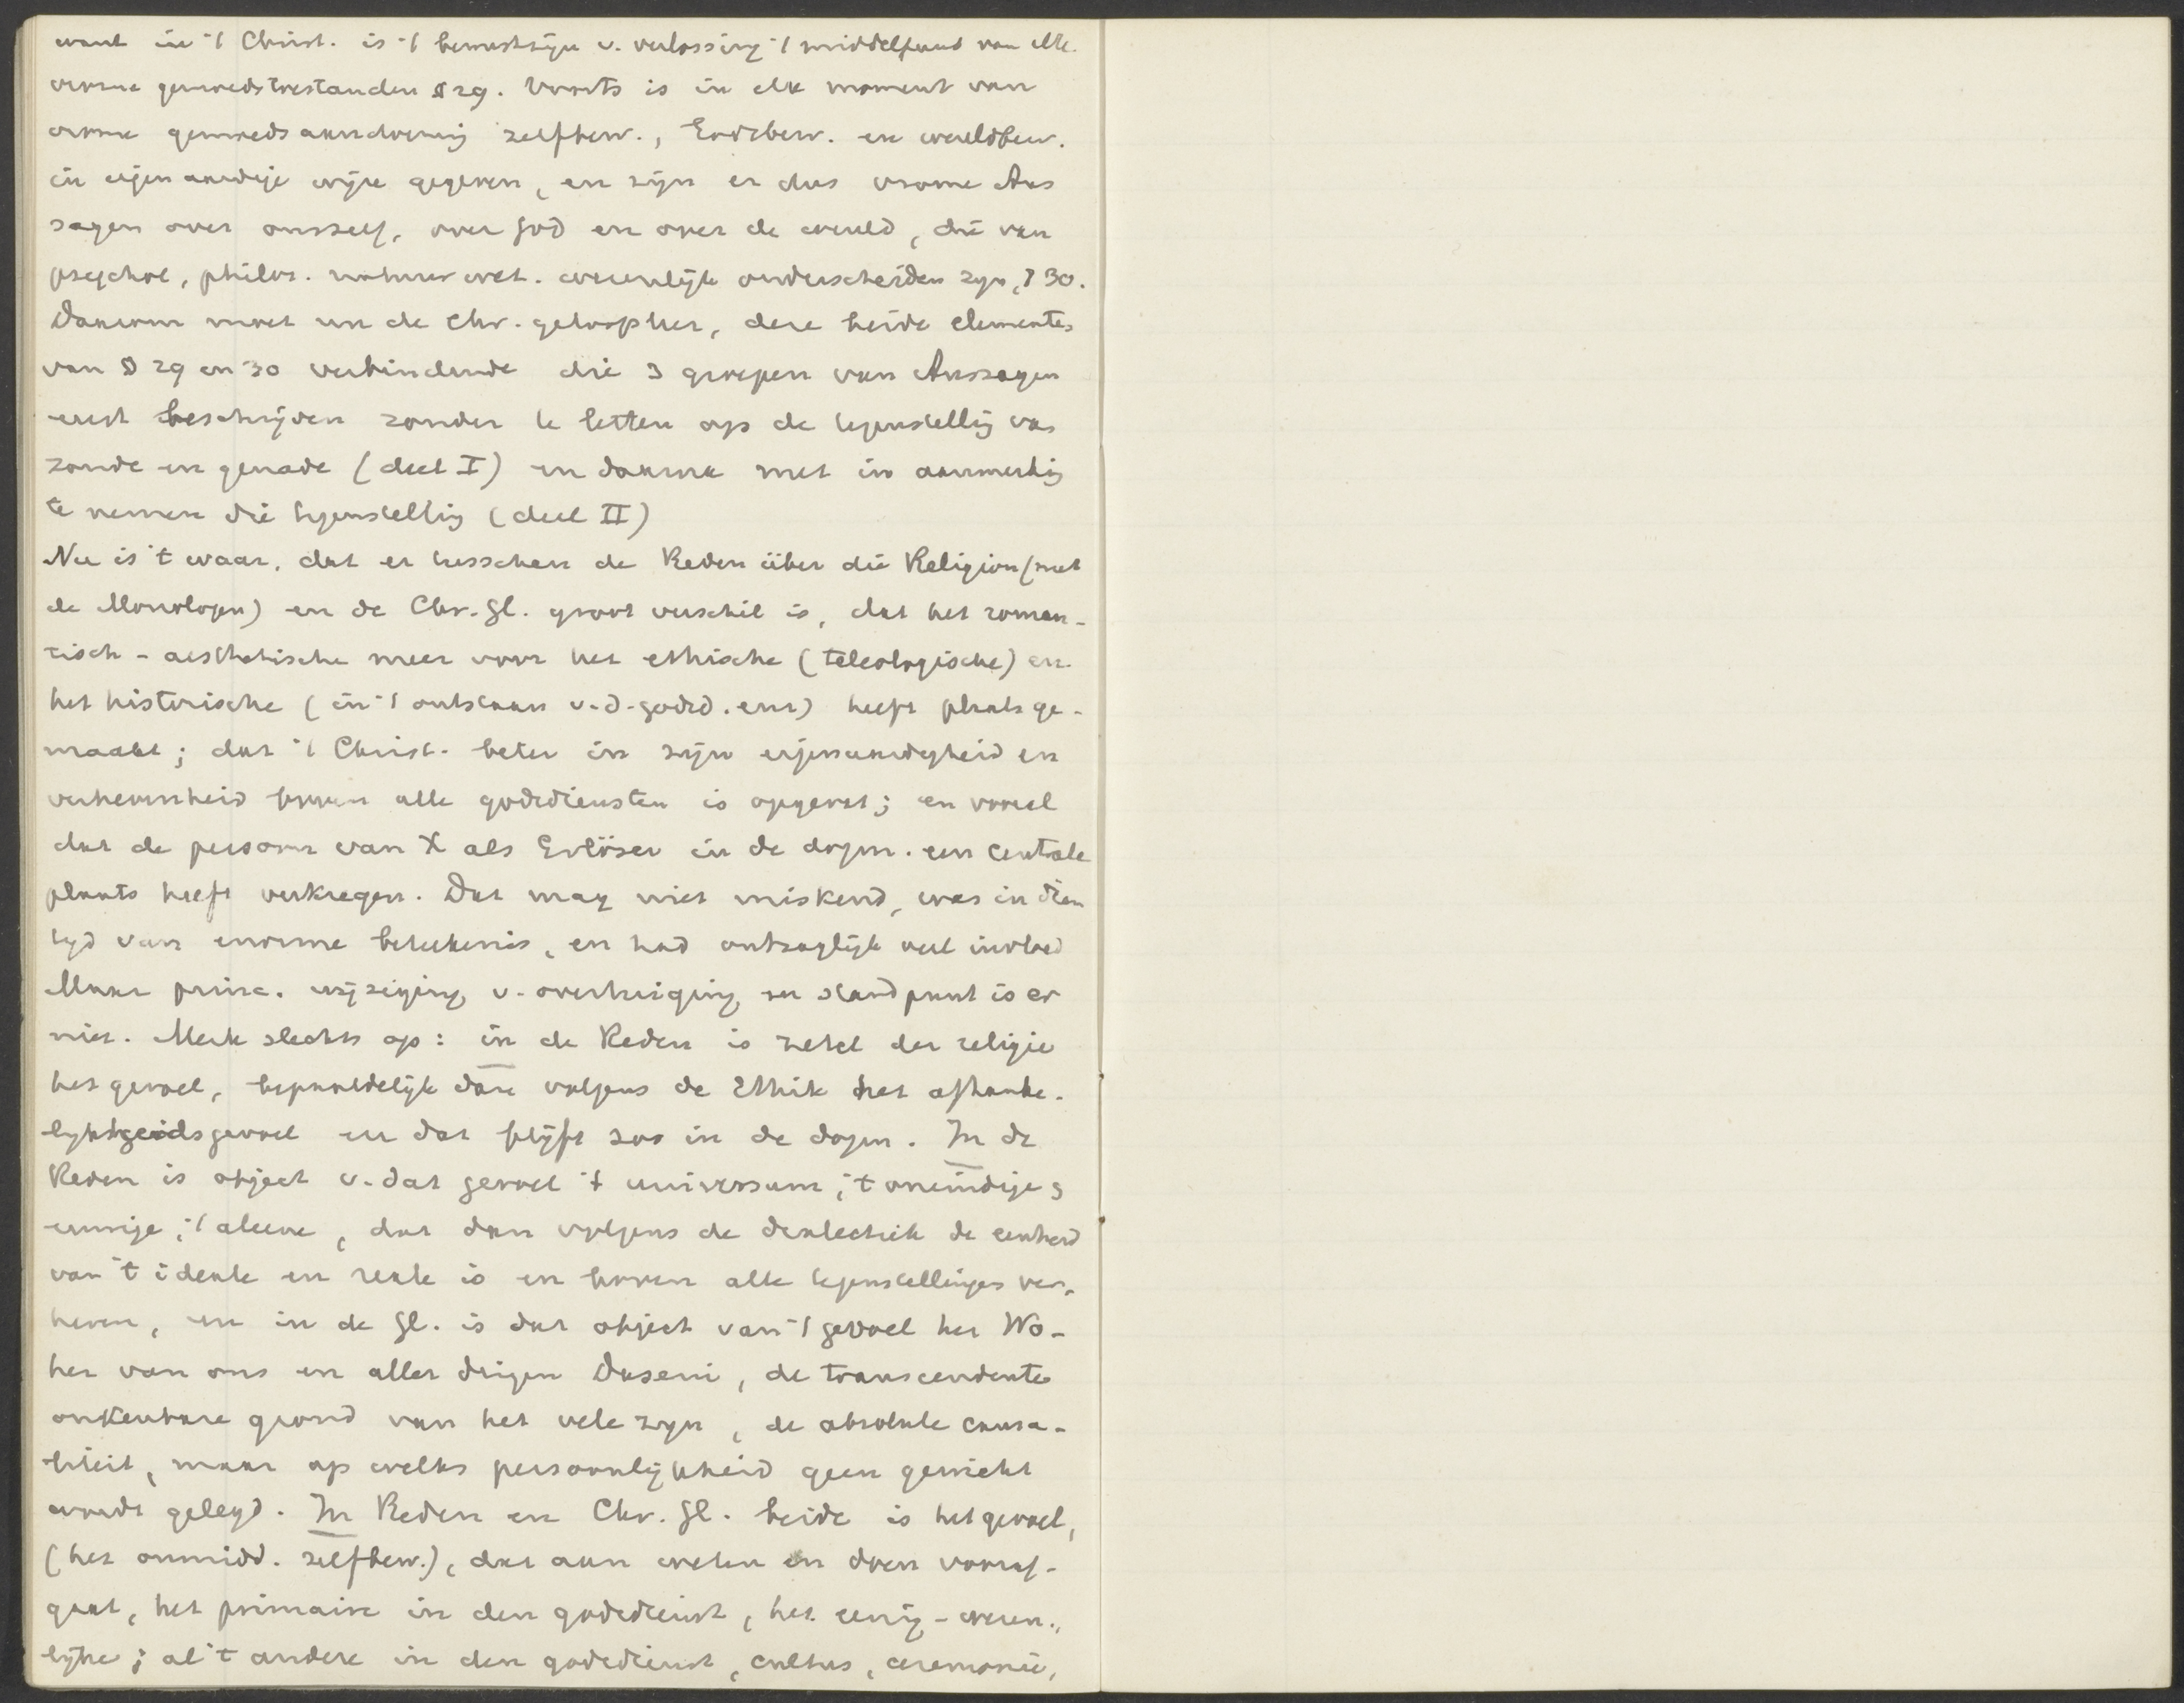 want in 't Christ. is 't bewustzijn v. verlossing 't middelpunt van alle
vrome gemoedstoestanden § 29. Voorts is in elk moment van
vrome gemoedsaandoening zelfbew., Godsbew. en wereldbew.
in eigenaardige wijze gegeven, en zijn er dus vrome Aus
sagen over onszelf, over God en over de wereld, die van
psychol, philos. natuurwet. wezenlijk onderscheiden zyn, § 30.
Daarom moet nu de Chr. geloofsleer, deze beide elementen
van § 29 en 30 verbindende die 3 groepen van Aussagen
eerst beschrijven zonder te letten op de tegenstellig van
zonde en genade (deel I) en daarna met in aanmerkig
te nemen die tegenstellig (deel II)
Nu is 't waar, dat er tusschen de Reden über die Religion (met
de Monologen) en de Chr. Gl. groot verschil is, dat het roman-
tisch-aesthetische meer voor het ethische (teleologische) en
het historische (in 't ontstaan v.d. godsd. enz) heeft plaats ge-
maakt; dat 't Christ. beter in zijn eigenaardigheid en
verhevenheid boven alle godsdiensten is opgevat; en vooral
dat de persoon van X als Erlöser in de dogm. een centrale
plaats heeft verkregen. Dat mag niet miskend, was in dien
tyd van enorme beteekenis, en had ontzaglijk veel invloed
Maar princ. wijziging v. overtuiging en standpunt is er
niet. Merk slechts op: in de Reden is zetel der religie
het gevoel, bepaaldelijk dan volgens de Ethik het afhanke-
lykheidsgevoel en dat blijft zoo in de dogm. In de
Reden is object v. dat gevoel 't universum, 't oneindige,
eeuwige, 't aleene, dat dan volgens de dialectiek de eenheid
van 't ideale en reale is en boven alle tegenstellingen ver-
heven, en in de Gl. is dat object van 't gevoel het Wo-
her van ons en aller dingen Dasein, de transcendente
onkenbare grond van het vele zyn, de absolute causa-
liteit, maar op welks persoonlijkheid geen gewicht
wordt gelegd. In Reden en Chr. Gl. beide is het gevoel,
(het onmidd. zelfbew.), dat aan weten en doen vooraf-
gaat, het primaire in den godsdienst, het eenig-wezen-
lijke; al 't andere in den godsdienst, cultus, ceremonie,